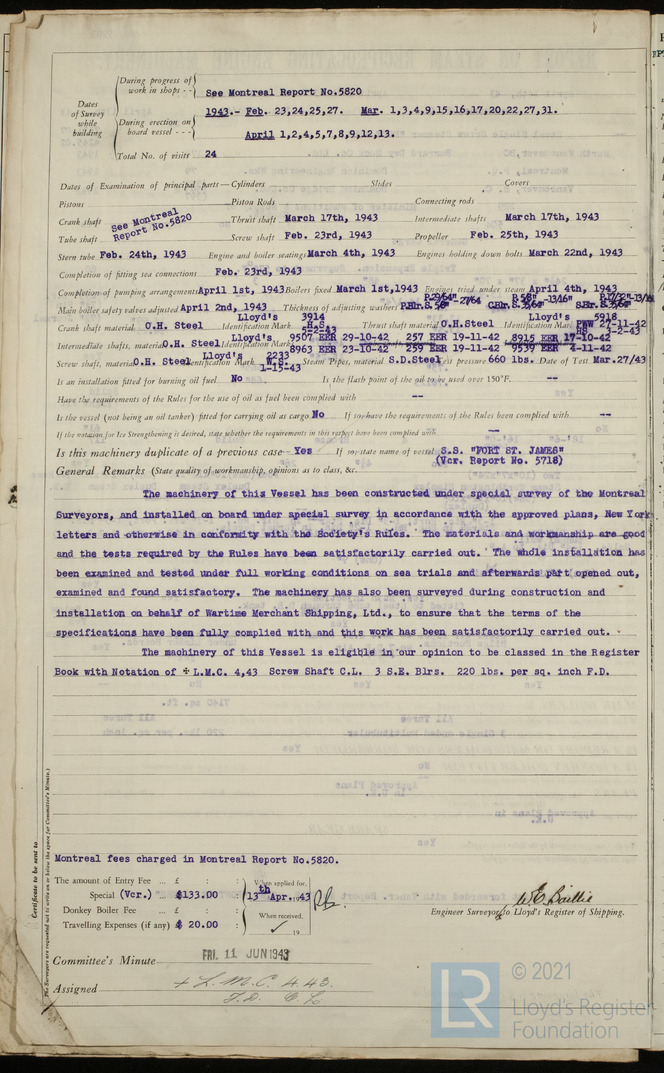 During progress of work in shops - - See Montreal Report No.5820
Dates of Survey while building
1943.- Feb. 23,24,25,27. Mar. 1,3,4,9,15,16,17,20,22,27,31.
During erection on board vessel - - -
April 1,2,4,5,7,8,9,12,13.
Total No. of visits 24
Dates of Examination of principal parts—Cylinders Slides Covers
Pistons Piston Rods Connecting rods
Crank shaft See Montreal Report No.5820 Thrust shaft March 17th, 1943 Intermediate shafts March 17th, 1943
Tube shaft Screw shaft Feb. 23rd, 1943 Propeller Feb. 25th, 1943
Stern tube Feb. 24th, 1943 Engine and boiler seatings March 4th, 1943 Engines holding down bolts March 22nd, 1943
Completion of fitting sea connections Feb. 23rd, 1943
Completion of pumping arrangements April 1st, 1943 Boilers fixed March 1st,1943 Engines tried under steam April 4th, 1943
Main boiler safety valves adjusted April 2nd, 1943 Thickness of adjusting washers
Crank shaft material O.H. Steel Identification Mark Lloyd's 3914 H.S. 5-2-43 Thrust shaft material O.H.Steel Identification Mark Lloyd's 5918 27-11-42
Intermediate shafts, material O.H. Steel Identification Marks Lloyd's 9507 EER 29-10-42 257 EER 19-11-42 8915 EER 17-10-42
8963 EER 23-10-42 259 EER 19-11-42 9539 EER 4-11-42
Screw shaft, material O.H. Steel Identification Mark Lloyd's 2233 W.S. 1-15-43 Steam Pipes, material S.D.Steel Test pressure 660 lbs. Date of Test Mar.27/43
Is an installation fitted for burning oil fuel No Is the flash point of the oil to be used over 150°F. --
Have the requirements of the Rules for the use of oil as fuel been complied with --
Is the vessel (not being an oil tanker) fitted for carrying oil as cargo No If so, have the requirements of the Rules been complied with --
If the notation for Ice Strengthening is desired, state whether the requirements in this respect have been complied with --
Is this machinery duplicate of a previous case Yes If so, state name of vessel S.S. "FORT ST. JAMES"
(Vcr. Report No. 5718)
General Remarks (State quality of workmanship, opinions as to class, &c.
The machinery of this Vessel has been constructed under special survey of the Montreal
Surveyors, and installed on board under special survey in accordance with the approved plans, New York
letters and otherwise in conformity with the Society's Rules. The materials and workmanship are good
and the tests required by the Rules have been satisfactorily carried out. The whole installation has
been examined and tested under full working conditions on sea trials and afterwards part opened out,
examined and found satisfactory. The machinery has also been surveyed during construction and
installation on behalf of Wartime Merchant Shipping, Ltd., to ensure that the terms of the
specifications have been fully complied with and this work has been satisfactorily carried out.
The machinery of this Vessel is eligible in our opinion to be classed in the Register
Book with Notation of + L.M.C. 4,43 Screw Shaft C.L. 3 S.E. Blrs. 220 lbs. per sq. inch F.D.
Montreal fees charged in Montreal Report No.5820.
The amount of Entry Fee ... £ : : When applied for,
Special (Vcr.) ... $133.00 : 13th Apr. 1943
Donkey Boiler Fee ... £ : : When received,
Travelling Expenses (if any) $ 20.00 : 19
W E Baillie
Engineer Surveyor to Lloyd's Register of Shipping.
Committee's Minute FRI. 11 JUN 1943
Assigned + L.M.C. 4.43.
F.D. C.L.
Certificate to be sent to
(The Surveyors are requested not to write on or below the space for Committee's Minute.)
LR © 2021
Lloyd's Register
Foundation